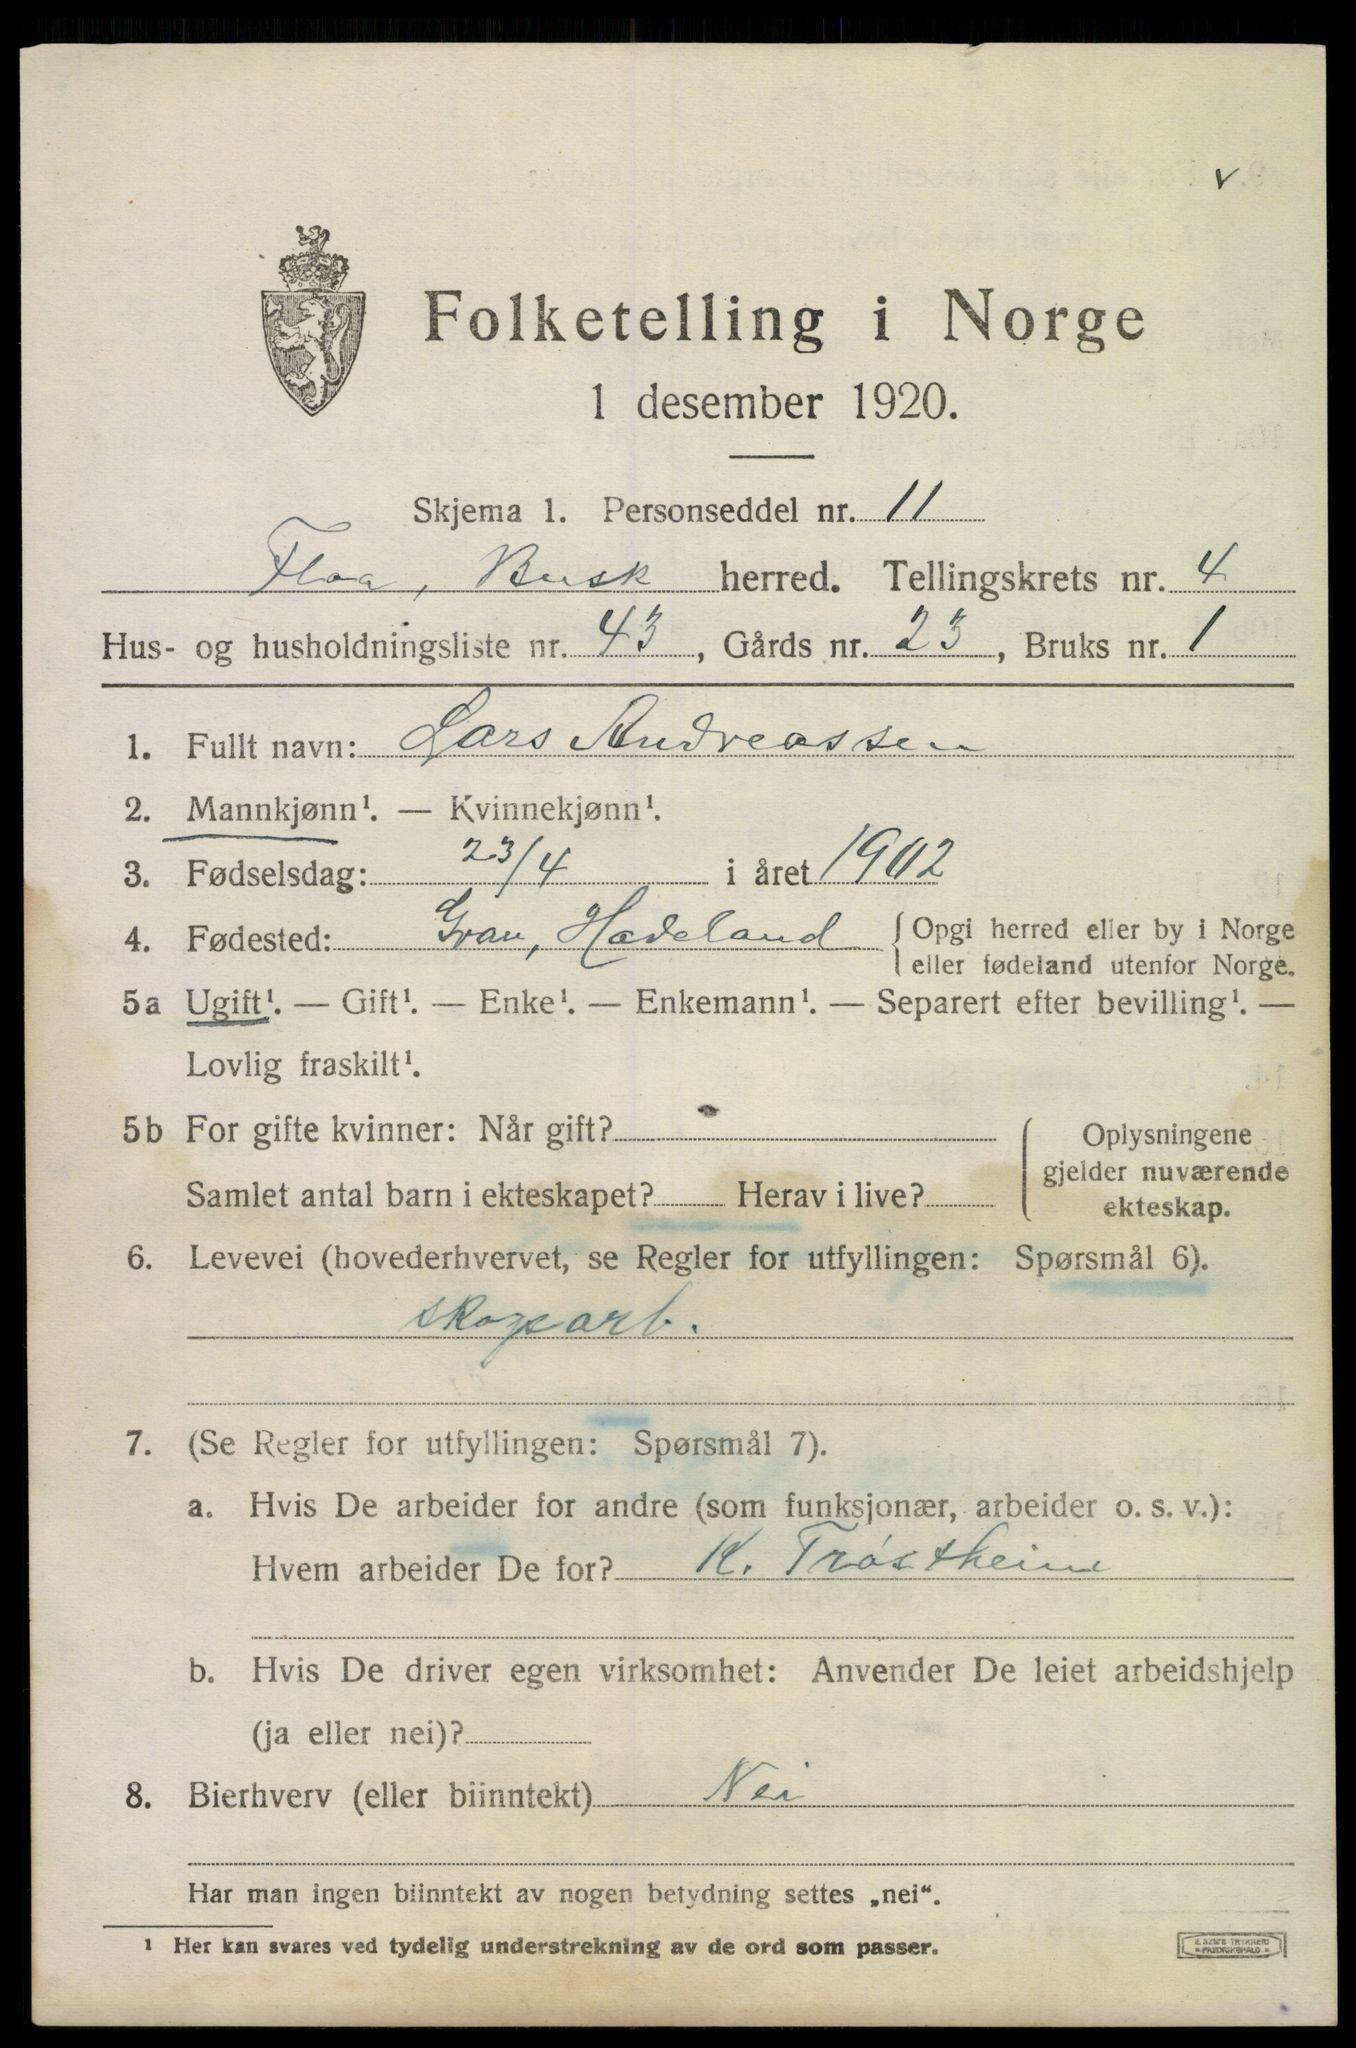 v
Folketelling i Norge
1 desember 1920.
Skjema 1. Personseddel nr. 11
Flaa, Busk herred. Tellingskrets nr. 4
Hus- og husholdningsliste nr. 43, Gårds nr. 23, Bruks nr. 1
1. Fullt navn: Lars Andreassen
2. Mannkjønn¹. — Kvinnekjønn¹.
3. Fødselsdag: 23/4 i året 1902
4. Fødested: Gran, Hadeland { Opgi herred eller by i Norge
eller fødeland utenfor Norge.
5a Ugift¹. — Gift¹. — Enke¹. — Enkemann¹. — Separert efter bevilling¹. —
Lovlig fraskilt¹.
5b For gifte kvinner: Når gift?
Samlet antal barn i ekteskapet? Herav i live?
Oplysningene
gjelder nuværende
ekteskap.
6. Levevei (hovederhvervet, se Regler for utfyllingen: Spørsmål 6).
skogsarb.
7. (Se Regler for utfyllingen: Spørsmål 7).
a. Hvis De arbeider for andre (som funksjonær, arbeider o. s. v.):
Hvem arbeider De for? K. Trøstheim
b. Hvis De driver egen virksomhet: Anvender De leiet arbeidshjelp
(ja eller nei)?
8. Bierhverv (eller biinntekt) Nei
Har man ingen biinntekt av nogen betydning settes „nei“.
¹ Her kan svares ved tydelig understrekning av de ord som passer.